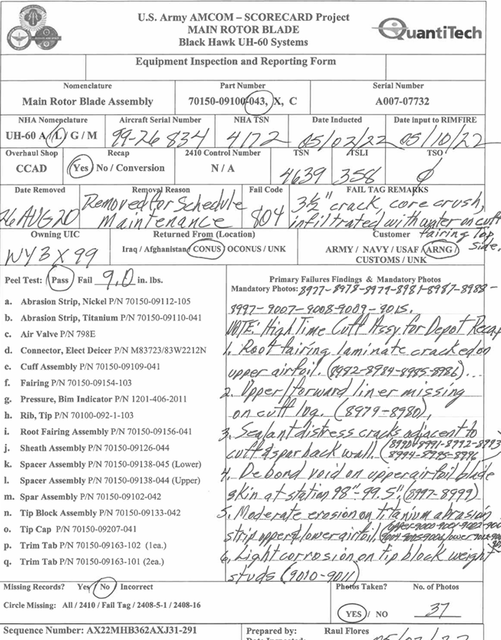 U.S. Army AMCOM – SCORECARD Project
MAIN ROTOR BLADE
Black Hawk UH-60 Systems
QuantiTech
Equipment Inspection and Reporting Form
Nomenclature Part Number Serial Number
Main Rotor Blade Assembly 70150-09100-043, X, C A007-07732
NHA Nomenclature Aircraft Serial Number NHA TSN Date Inducted Date input to RIMFIRE
UH-60 A / L / G / M 99-26834 4172 05/02/22 05/10/22
Overhaul Shop Recap 2410 Control Number TSN ATSLI TSO
CCAD Yes / No / Conversion N / A 4639 358 0
Date Removed Removal Reason Fail Code FAIL TAG REMARKS
26 AUG 20 Removed for Schedule Maintenance 804 3½" crack, core crush, infiltrated with water on cuff fairing top side.
Owning UIC Returned From (Location) Customer
WY3X99 Iraq / Afghanistan / CONUS / OCONUS / UNK ARMY / NAVY / USAF / ARNG / CUSTOMS / UNK
Peel Test: Pass Fail 9.0 in. lbs.
a. Abrasion Strip, Nickel P/N 70150-09112-105
b. Abrasion Strip, Titanium P/N 70150-09110-041
c. Air Valve P/N 798E
d. Connector, Elect Deicer P/N M83723/83W2212N
e. Cuff Assembly P/N 70150-09109-041
f. Fairing P/N 70150-09154-103
g. Pressure, Bim Indicator P/N 1201-406-2011
h. Rib, Tip P/N 70100-092-1-103
i. Root Fairing Assembly P/N 70150-09156-041
j. Sheath Assembly P/N 70150-09126-044
k. Spacer Assembly P/N 70150-09138-045 (Lower)
l. Spacer Assembly P/N 70150-09138-044 (Upper)
m. Spar Assembly P/N 70150-09102-042
n. Tip Block Assembly P/N 70150-09133-042
o. Tip Cap P/N 70150-09207-041
p. Trim Tab P/N 70150-09163-102 (1ea.)
q. Trim Tab P/N 70150-09163-101 (2ea.)
Primary Failures Findings & Mandatory Photos
Mandatory Photos: 8977-8978-8979-8981-8987-8988-
8997-9007-9008-9009-9015.
NOTE: High Time Cuff Assy. for Depot Recap
1. Root fairing laminate cracked on
upper airfoil. (8982-8984-8985-8986)...
2. Upper/forward liner missing
on cuff log. (8979-8980).
3. Sealant distress cracks adjacent to
cuff & spar back wall. (8990-8991-8992-8993
8994-8995-8996
4. Debond void on upper airfoil blade
skin at station 98"-99.5" (8997-8999)
5. Moderate erosion on titanium abrasion
strip upper & lower airfoil.
6. Light corrosion on tip block weight
studs (9010-9011)
Missing Records? Yes / No / Incorrect
Circle Missing: All / 2410 / Fail Tag / 2408-5-1 / 2408-16
Photos Taken? No. of Photos
YES / NO 37
Sequence Number: AX22MHB362AXJ31-291 Prepared by: Raul Flores